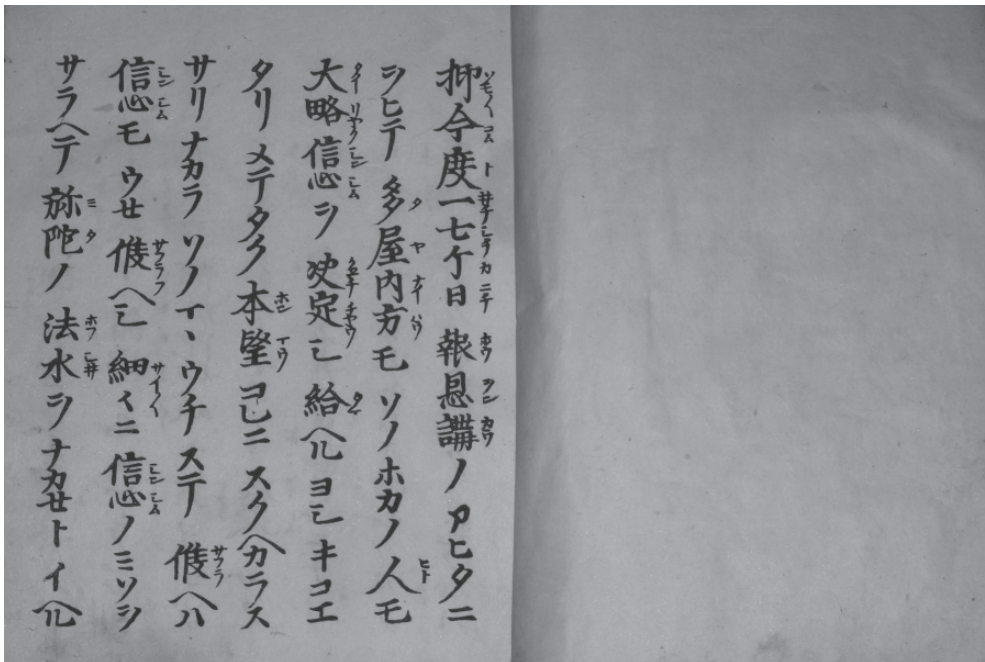 抑今度一七ケ日報恩講ノアヒタニ
ヲヒテ多屋内方モソノホカノ人モ
大略信心ヲ決定シ給ヘルヨシキコエ
タリメテタク本望コレニスクヘカラス
サリナカラソノマヽウチステ候ヘハ
信心モウセ候ヘシ細々ニ信心ノミソヲ
サラヘテ弥陀ノ法水ヲナカセトイヘル